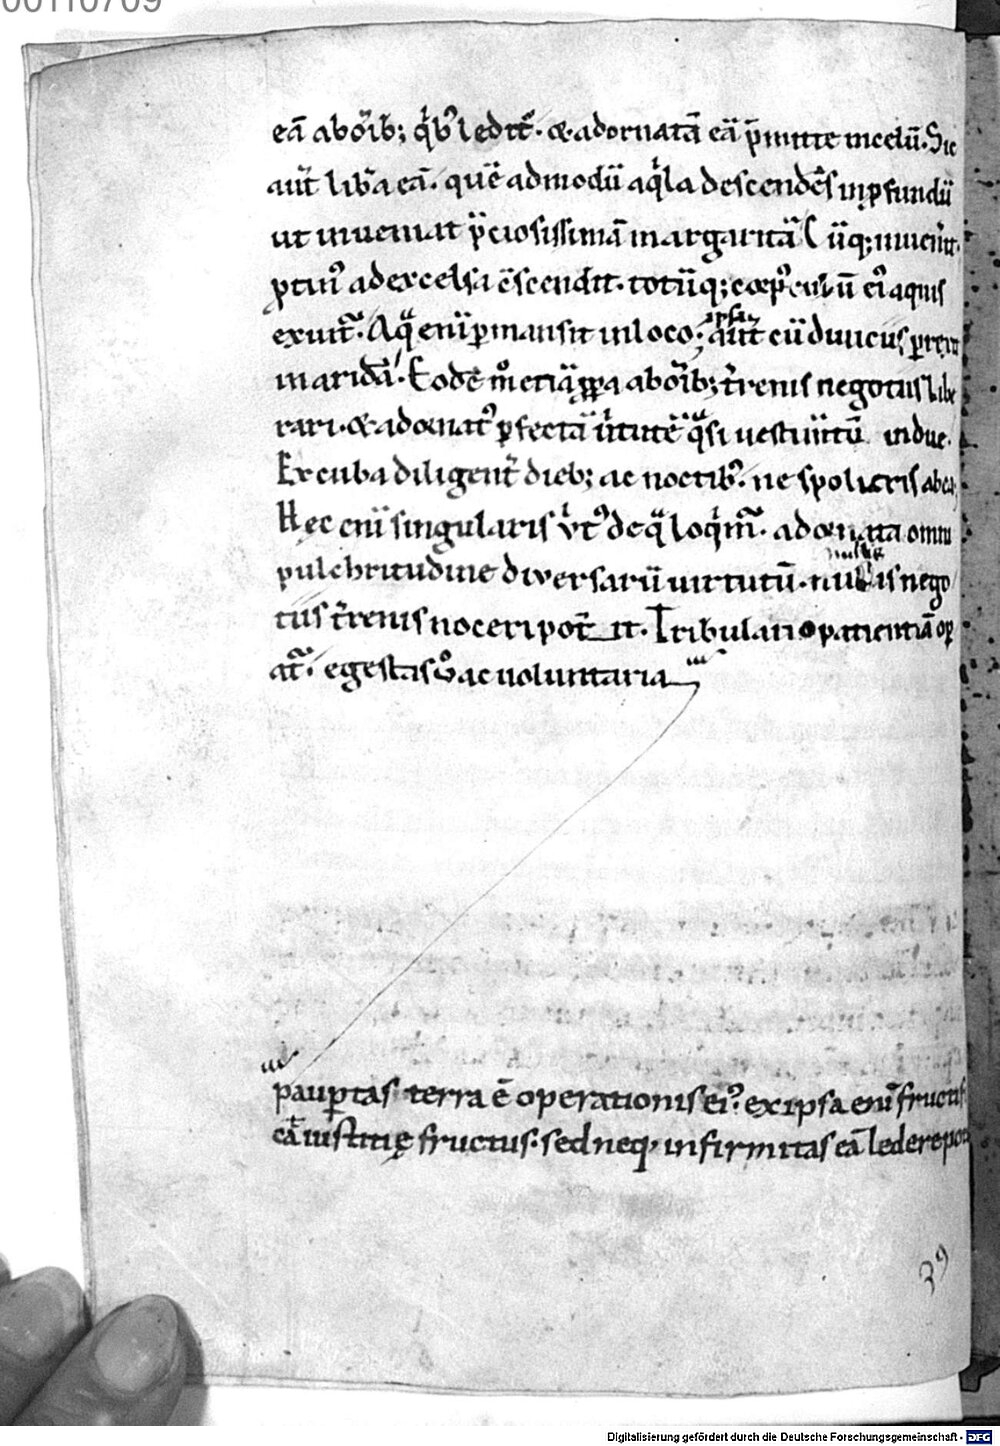 00110709
eā ab oīb; qib' ledit᷑. & adornatā eā p̄mitte in celū. Sic
aut̄ lib̄a eā. quē admodū aqla descendēs in pfundū
ut inueniat p̄ciosissimā margaritā
ptin' ad excelsa
exuit᷑. Aqͣ enī pmansit in loco; ipsa aut̄ cū
in aridā. Eodē mͦ etiā ab oīb; t̄renis negotiis libe
rari. & ad perfectā uͥtutē qͣsi uestimtū indue.
Excuba diligent̄ dieb; ac noctib'. ne spolieris ab ea,
Hec enī singularis vͥt' de qͣ loqimᷓ. adornata omni
pulchritudine diversarū uirtutū. nullis nego
tiis t̄renis noceri pot̄ it. Tribulatio patientiā op
atᷓ. egestas ac voluntaria
paupertas terra ē operationis ei'. ex ipsa enī fructif
cat̄ iustitię fructus. sed neq; infirmitas eā ledere pot
39
Digitalisierung gefördert durch die Deutsche Forschungsgemeinschaft - DFG